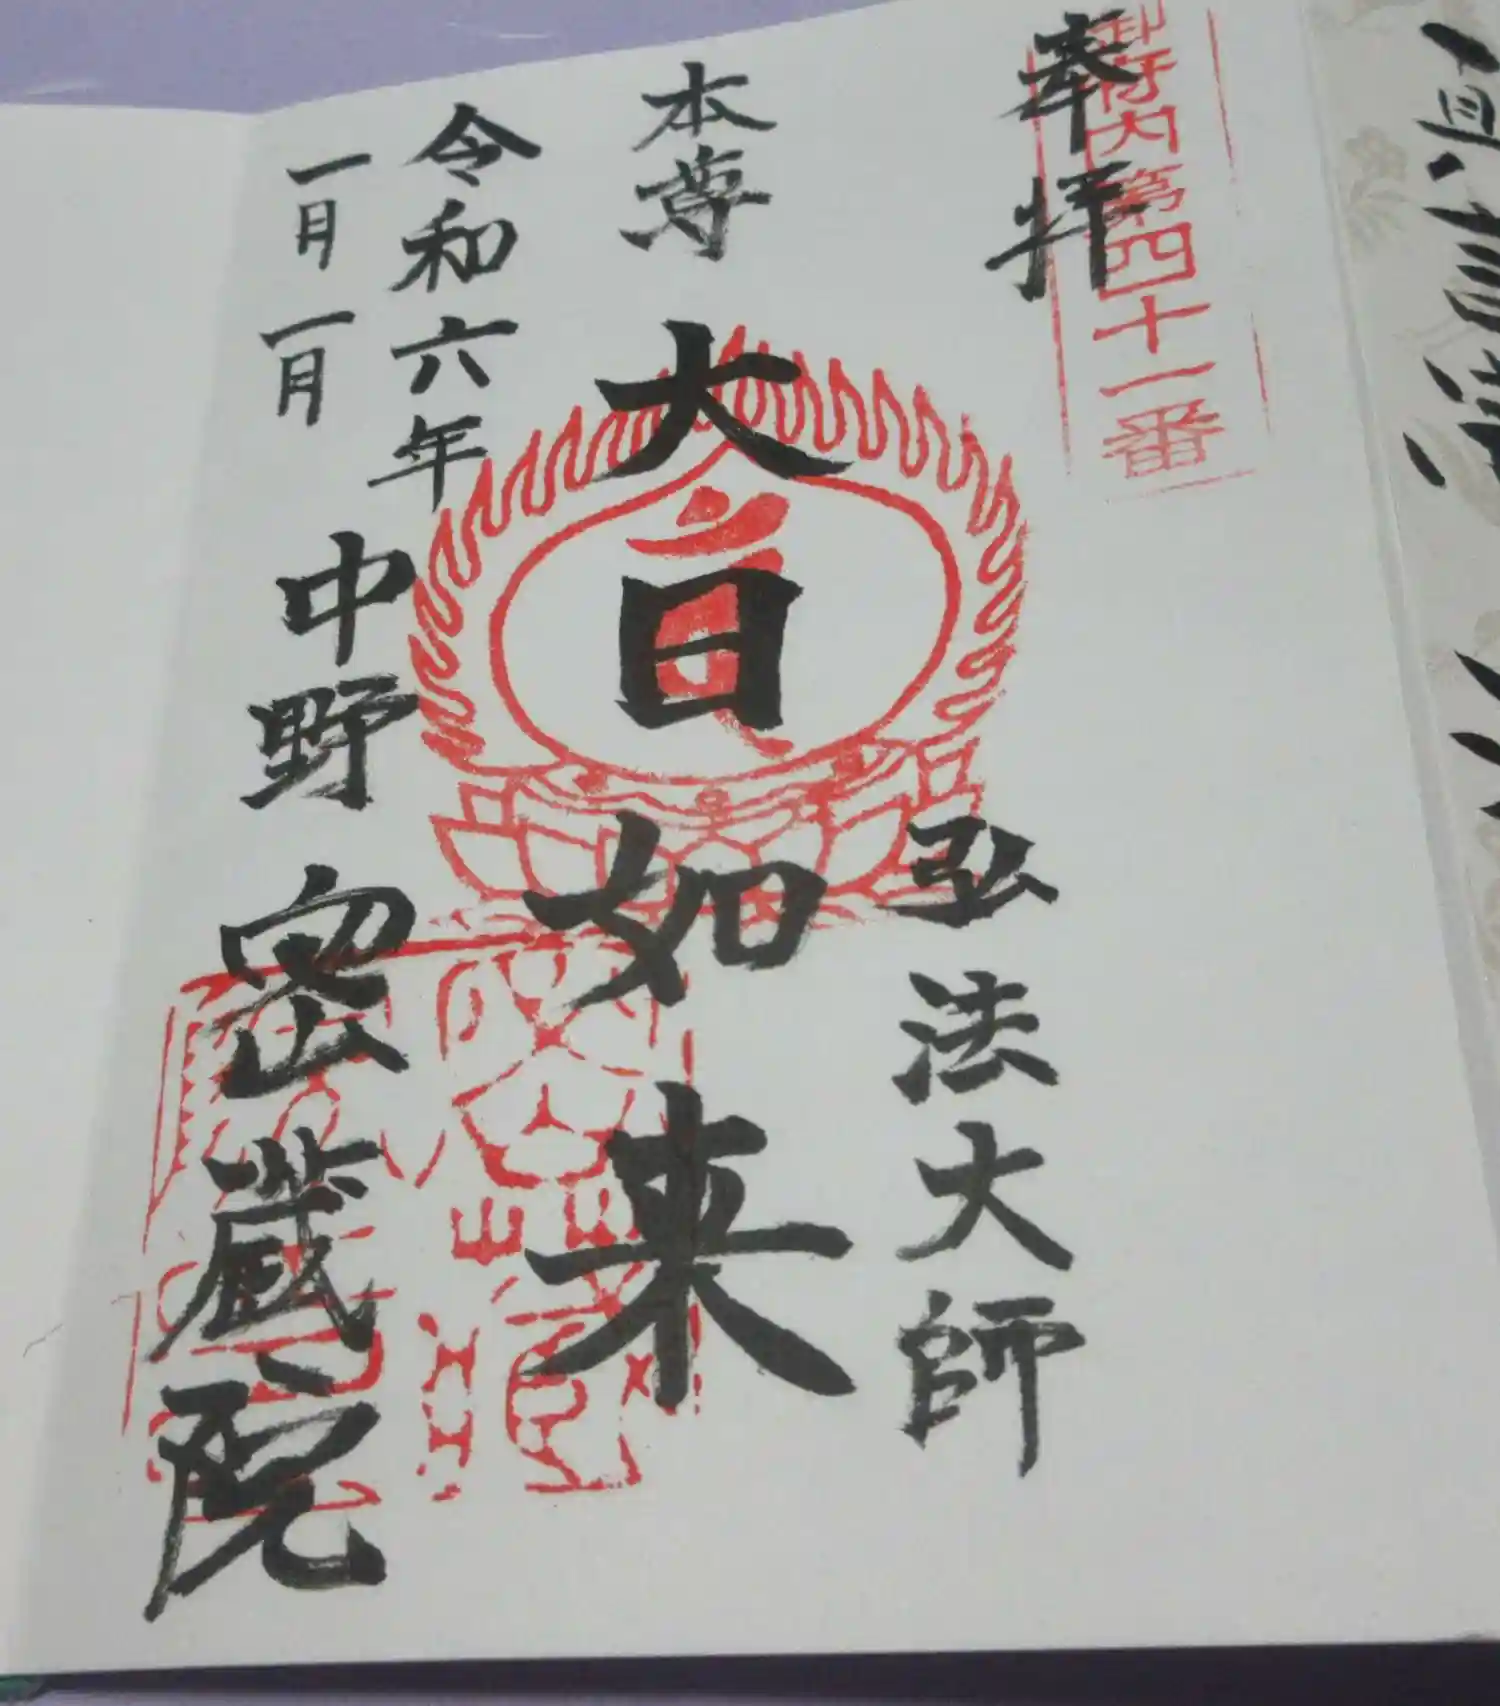 御府内第四十一番
奉拝
弘法大師
本尊 大日如来
令和六年
一月一月
中野 密蔵院